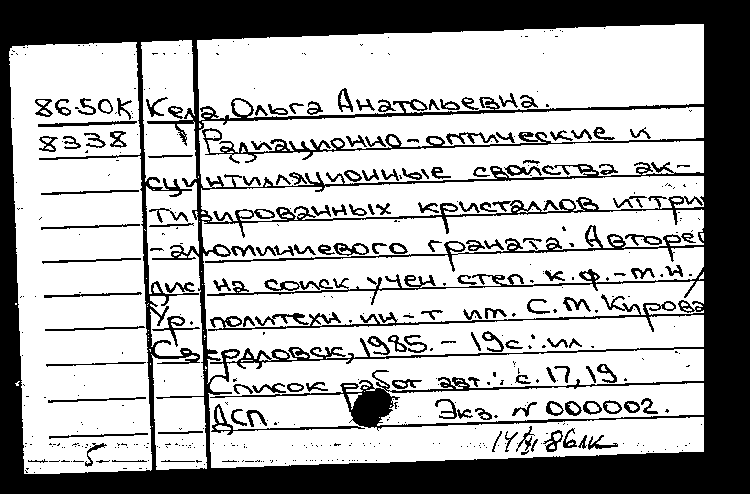 86-50К Кела, Ольга Анатольевна.
8338 Радиационно-оптические и
сцинтилляционные свойства ак-
тивированных кристаллов иттри
-алюминиевого граната: Авторе
дис. на соиск. учен. степ. к.ф.-м.н. /
Ур. политехн. ин-т им. С.М. Кирова
Свердловск, 1985. - 19 с.: ил.
Список работ авт.: с. 17, 19.
ДСП. Экз. № 000002.
5